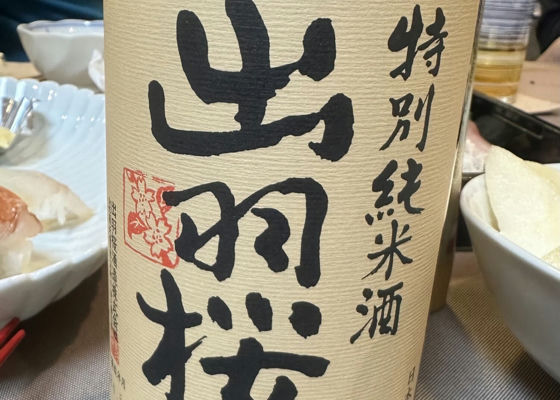 特別純米酒
出羽桜